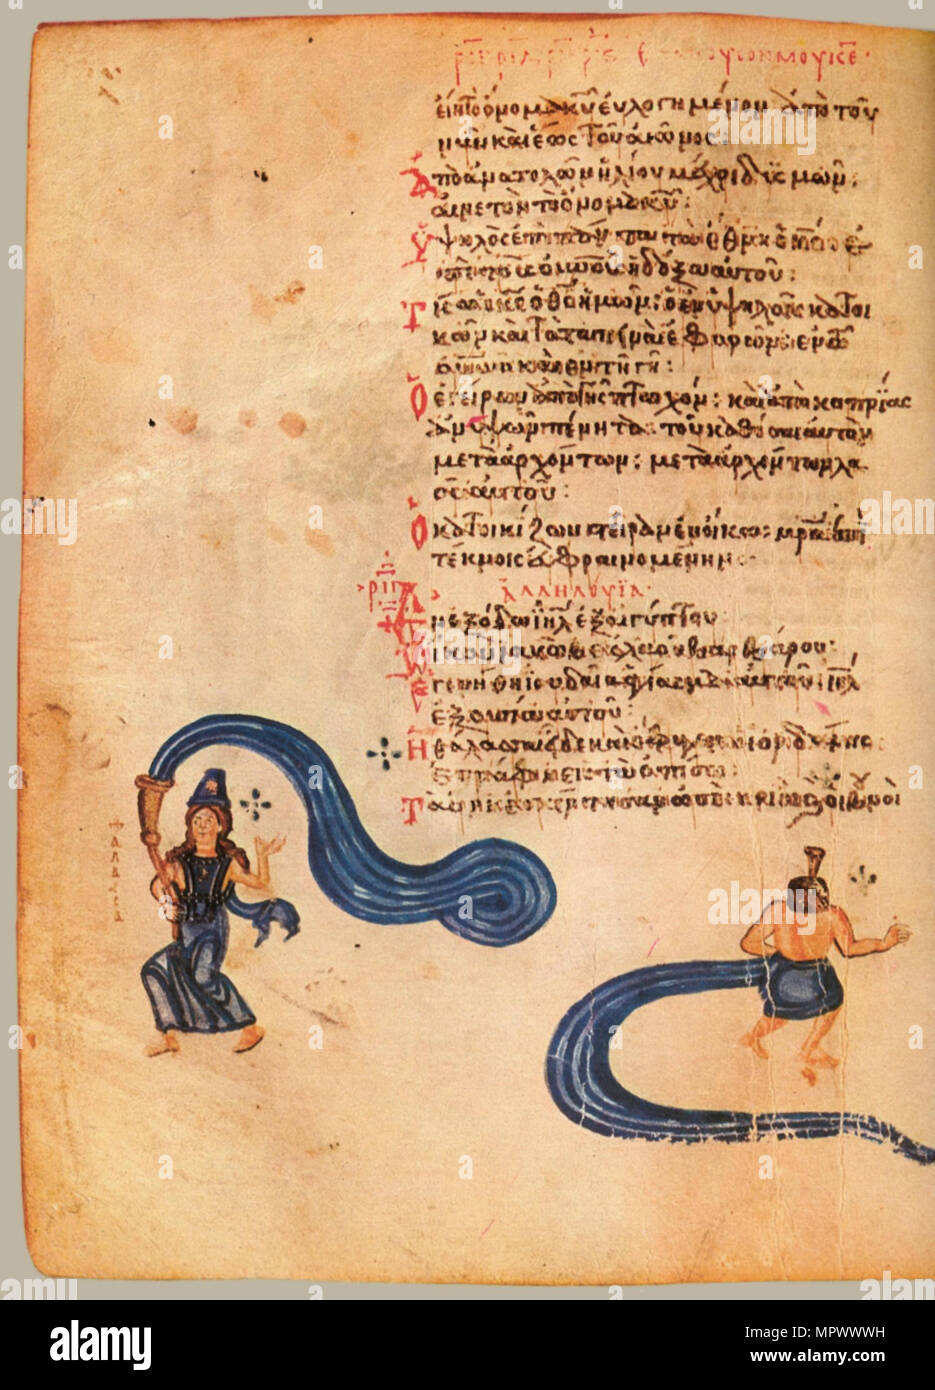 εἴη τὸ ὄνομα κῦ εὐλογημένον ἀπὸ τοῦ
νῦν καὶ ἕως τοῦ αἰῶνος:
Ἀπὸ ἀνατολῶν ἡλίου μέχρι δυσμῶν:
αἰνετὸν τὸ ὄνομα κῦ:
Ὑψηλὸς ἐπὶ πάντα τὰ ἔθνη ὁ κς ἐ
οὐνοὺς ἡ δόξα αὐτοῦ:
Τίς ὡς κς ὁ θς ἡμῶν: ὁ ἐν ὑψηλοῖς κατοι
κῶν καὶ τὰ ταπεινὰ ἐφορῶν: ἐν τῷ
οὐνῷ καὶ ἐν τῇ γῇ:
Ὁ ἐγείρων ἀπὸ γῆς πτωχόν: καὶ ἀπὸ κοπρίας
ἀνυψῶν πένητα: τοῦ καθίσαι αὐτὸν
μετὰ ἀρχόντων: μετὰ ἀρχόντων λα
οῦ αὐτοῦ:
Ὁ κατοικίζων στεῖραν ἐν οἴκῳ: μρᾶ ἐπὶ
τέκνοις εὐφραινομένην:
ἀλληλούϊα
Ἐν ἐξόδῳ ιηλ ἐξ αἰγύπτου
οἴκου ιακὼβ ἐκ λαοῦ βαρβάρου:
Ἐγενήθη ἰουδαία ἁγίασμα αὐτοῦ: ιηλ
ἐξουσία αὐτοῦ:
Ἡ θάλασσα εἶδεν καὶ ἔφυγεν ὁ ἰορδάνης
ἐστράφη εἰς τὰ ὀπίσω:
Τὰ ὄρη ἐσκίρτησαν ὡσεὶ κριοὶ
θαλασσα
alamy
Image ID: MPWWWH
www.alamy.com